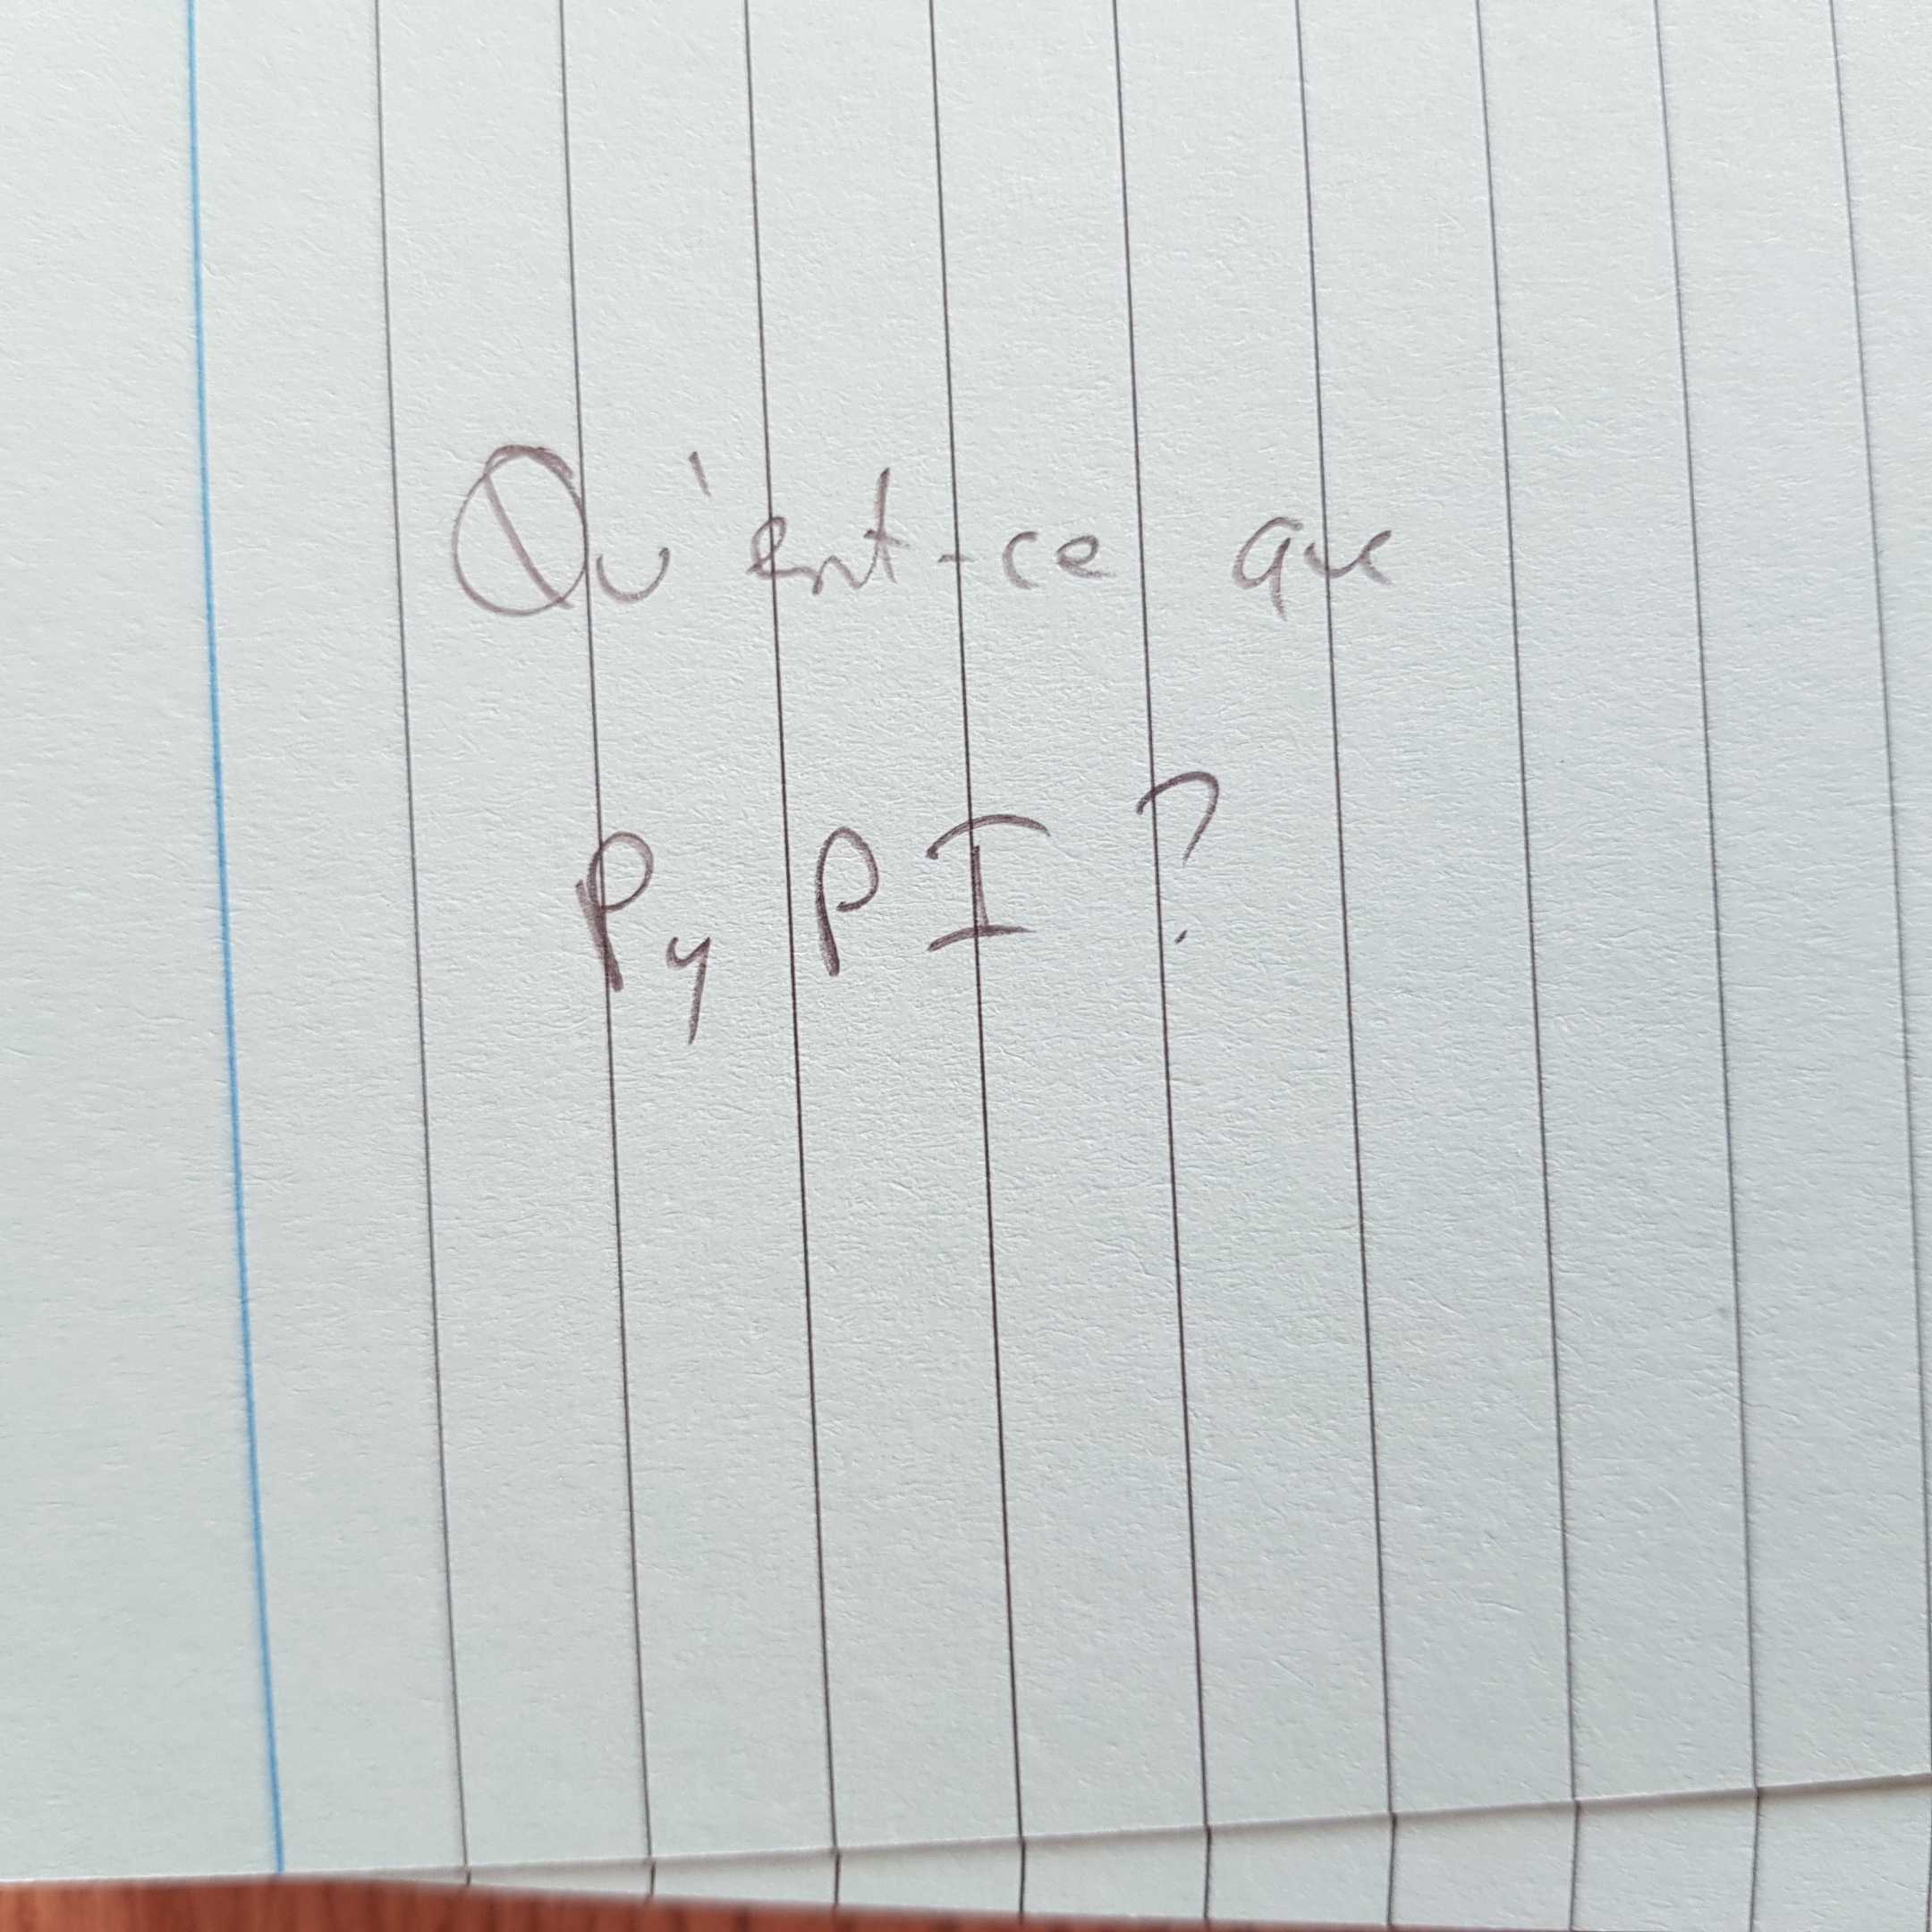 Qu'est-ce que
PyPI?